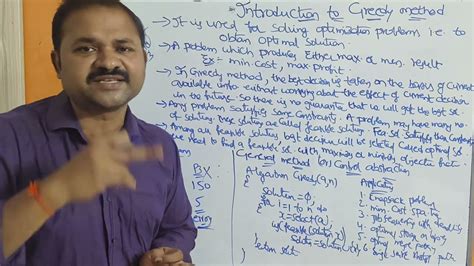 Introduction to Greedy method
→ It is used for solving optimization problems i.e. to
obtain optimal solution.
→ A problem which produces either max or min. result
Ex:- min.cost, max profit
→ In Greedy method, the best decision is taken on the basis of current
available info without worrying about the effect of current decision
in future. So there is no guarantee that we will get the best sol.
Any problem satisfies some constraints. A problem may have any no.
of solutions. These solutions are called feasible solutions.
→ Among all feasible solutions best decision will be selected called optimal sol
we need to find a feasible sol. with maximum or minimum objective
General method (or) Control abstraction
Algorithm Greedy(a,n)
{
Solution=Φ;
for i=1 to n do
{
x=select(a);
if feasible(solution,x)
return soln;
Applications
1. Knapsack problem
2. min. cost spa
3. Job sequencing with deadlines
4. optimal storage on tapes
5. optimal merge
6.
150
5